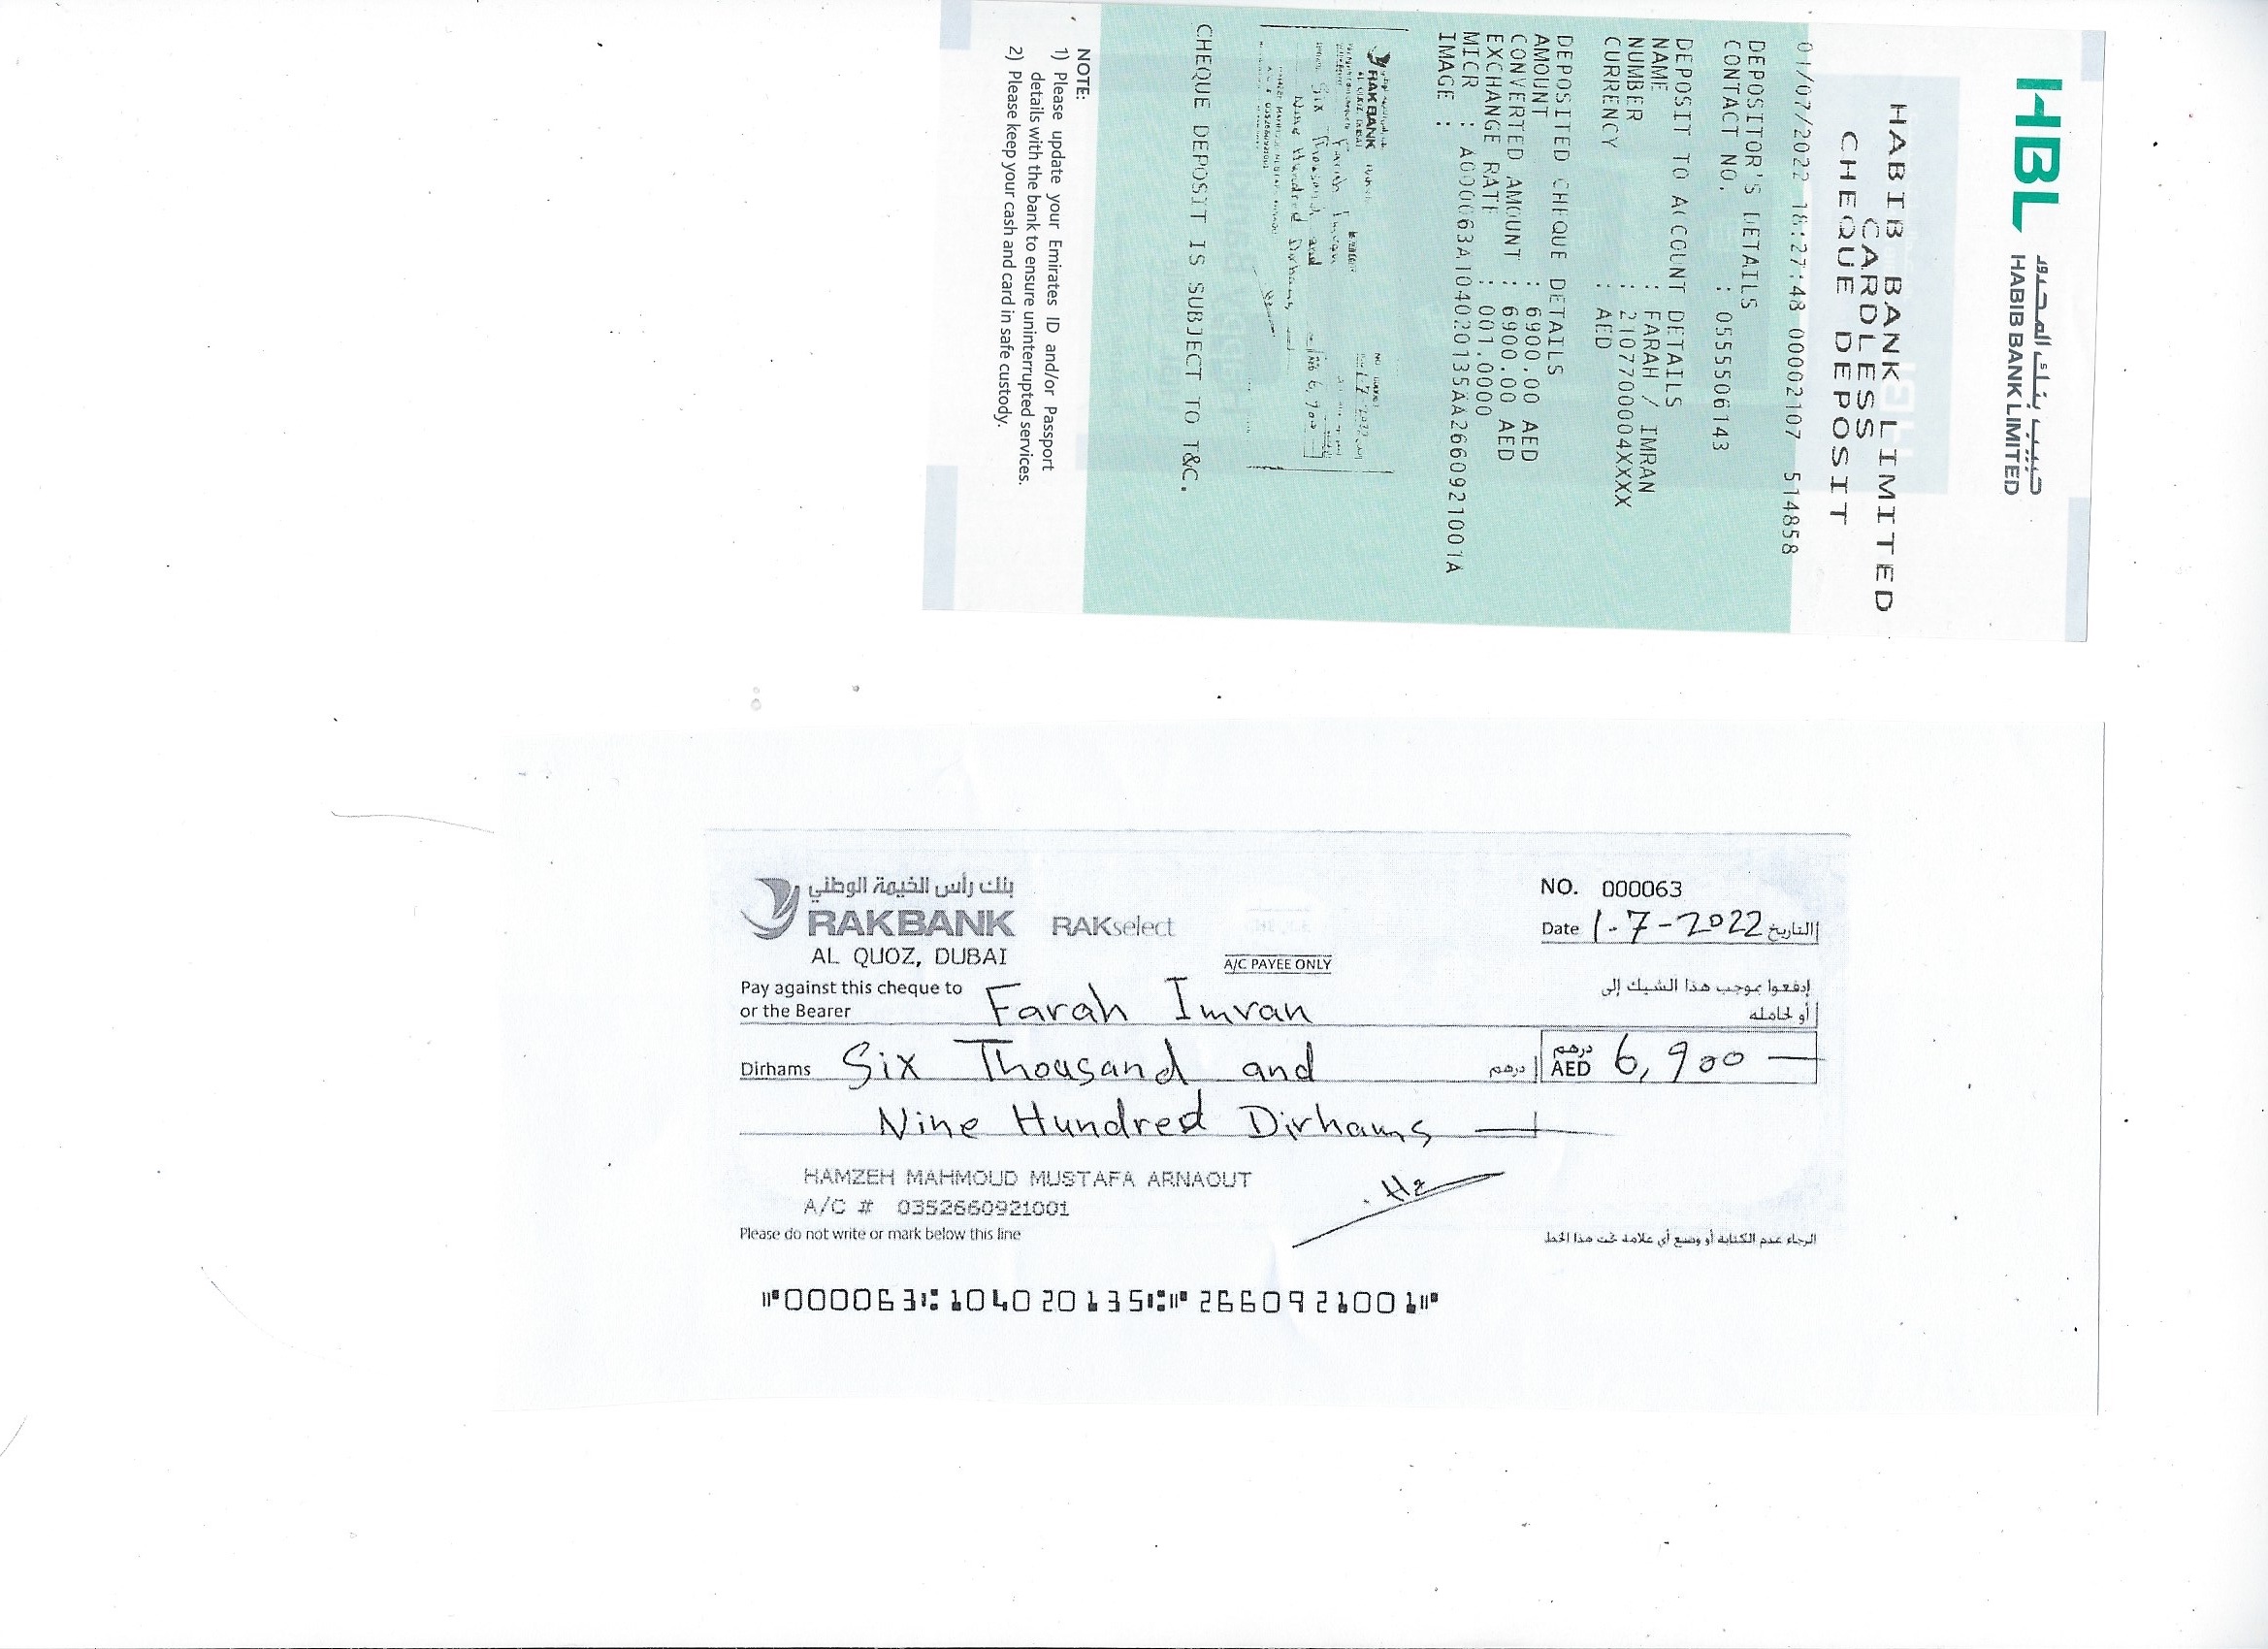 HBL
حبيب بنك المحدود
HABIB BANK LIMITED
HABIB BANK LIMITED
CARDLESS
CHEQUE DEPOSIT
01/07/2022 18:27:48 00002107 514858
DEPOSITOR'S DETAILS
CONTACT NO. : 0555506143
DEPOSIT TO ACCOUNT DETAILS
NAME : FARAH / IMRAN
NUMBER : 2107700004XXXX
CURRENCY : AED
DEPOSITED CHEQUE DETAILS
AMOUNT : 6900.00 AED
CONVERTED AMOUNT : 6900.00 AED
EXCHANGE RATE : 001.0000
MICR : A000063A104020135AA2660921001A
IMAGE :
RAKBANK
Farah Imran
Six Thousand and
Nine Hundred Dirhams
6,900
CHEQUE DEPOSIT IS SUBJECT TO T&C.
NOTE:
1) Please update your Emirates ID and/or Passport
details with the bank to ensure uninterrupted services.
2) Please keep your cash and card in safe custody.
بنك رأس الخيمة الوطني
RAKBANK RAKselect
AL QUOZ, DUBAI
NO. 000063
Date 1-7-2022 التاريخ
A/C PAYEE ONLY
Pay against this cheque to Farah Imran إدفعوا بموجب هذا الشيك إلى
or the Bearer أو لحامله
Dirhams Six Thousand and درهم
درهم
AED 6,900
Nine Hundred Dirhams
HAMZEH MAHMOUD MUSTAFA ARNAOUT
A/C # 0352660921001
Please do not write or mark below this line الرجاء عدم الكتابة أو وضع أي علامة تحت هذا الخط
⑈000063⑆104020135⑆⑈2660921001⑈